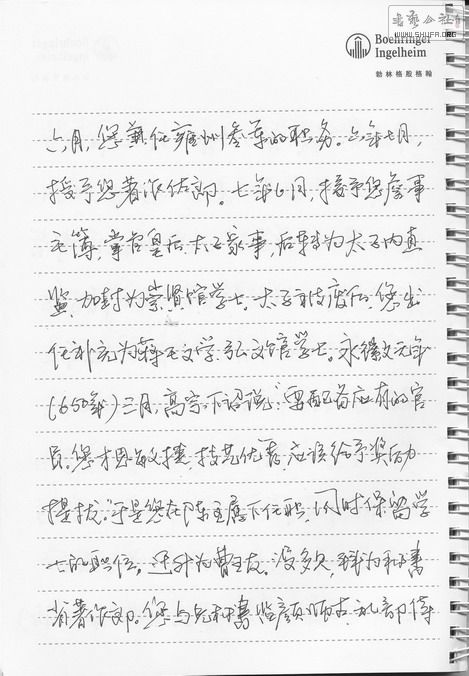 书艺公社
WWW.SHUFA.ORG
Boehringer
Ingelheim
勃林格殷格翰
六月,您兼任雍州参军的职务。六年七月,
授予您著作佐郎。七年6月,授予您詹事
主簿,掌管皇后、太子家事,后转为太子内直
监,加封为崇贤馆学士。太子被废后,您出
任补充为蒋王文学、弘文馆学士。永徽元年
(650年)三月,高宗下诏说:“需配备应有的官
员。您才思敏捷,技艺优秀,应该给予奖励
提拔。”于是您在陈王属下任职,同时保留学
士的职位,迁升为曹王友。没多久,转为秘书
省著作郎。您与兄秘书监颜师古、礼部侍